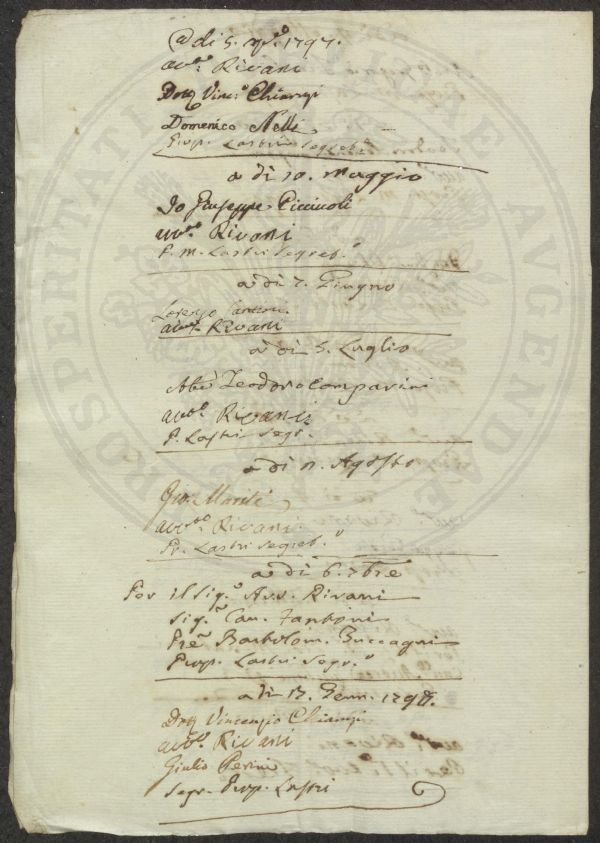 a di 5. 1797.
avv.º Rivani
Dott. Vinc.º Chiarugi
Domenico Nelli
Prop. Lastri Segret.º
a di 10. Maggio
Io Giuseppe Piccivoli
avv.º Rivani
P. M. Lastri Segret.º
a di 7. Giugno
Lorenzo
avv.º Rivani
a di 5. Luglio
Abe Teodoro Comparini
avv.º Rivani
P. Lastri Segr.
a di 11. Agosto
Gio. Mariti
avv.º Rivani
Pr. Lastri Segret.º
a di 6. 7bre
Per il Sig.º Avv. Rivani
Sig.º Can. Fantoni
Pre Bartolom. Guccagni
Prop. Lastri Segr.º
a di 17. Genn. 1798.
Dott Vincenzio Chiarugi
avv.º Rivani
Giulio Perini
Segr. Prop. Lastri
PROSPERITATI AUGENDAE